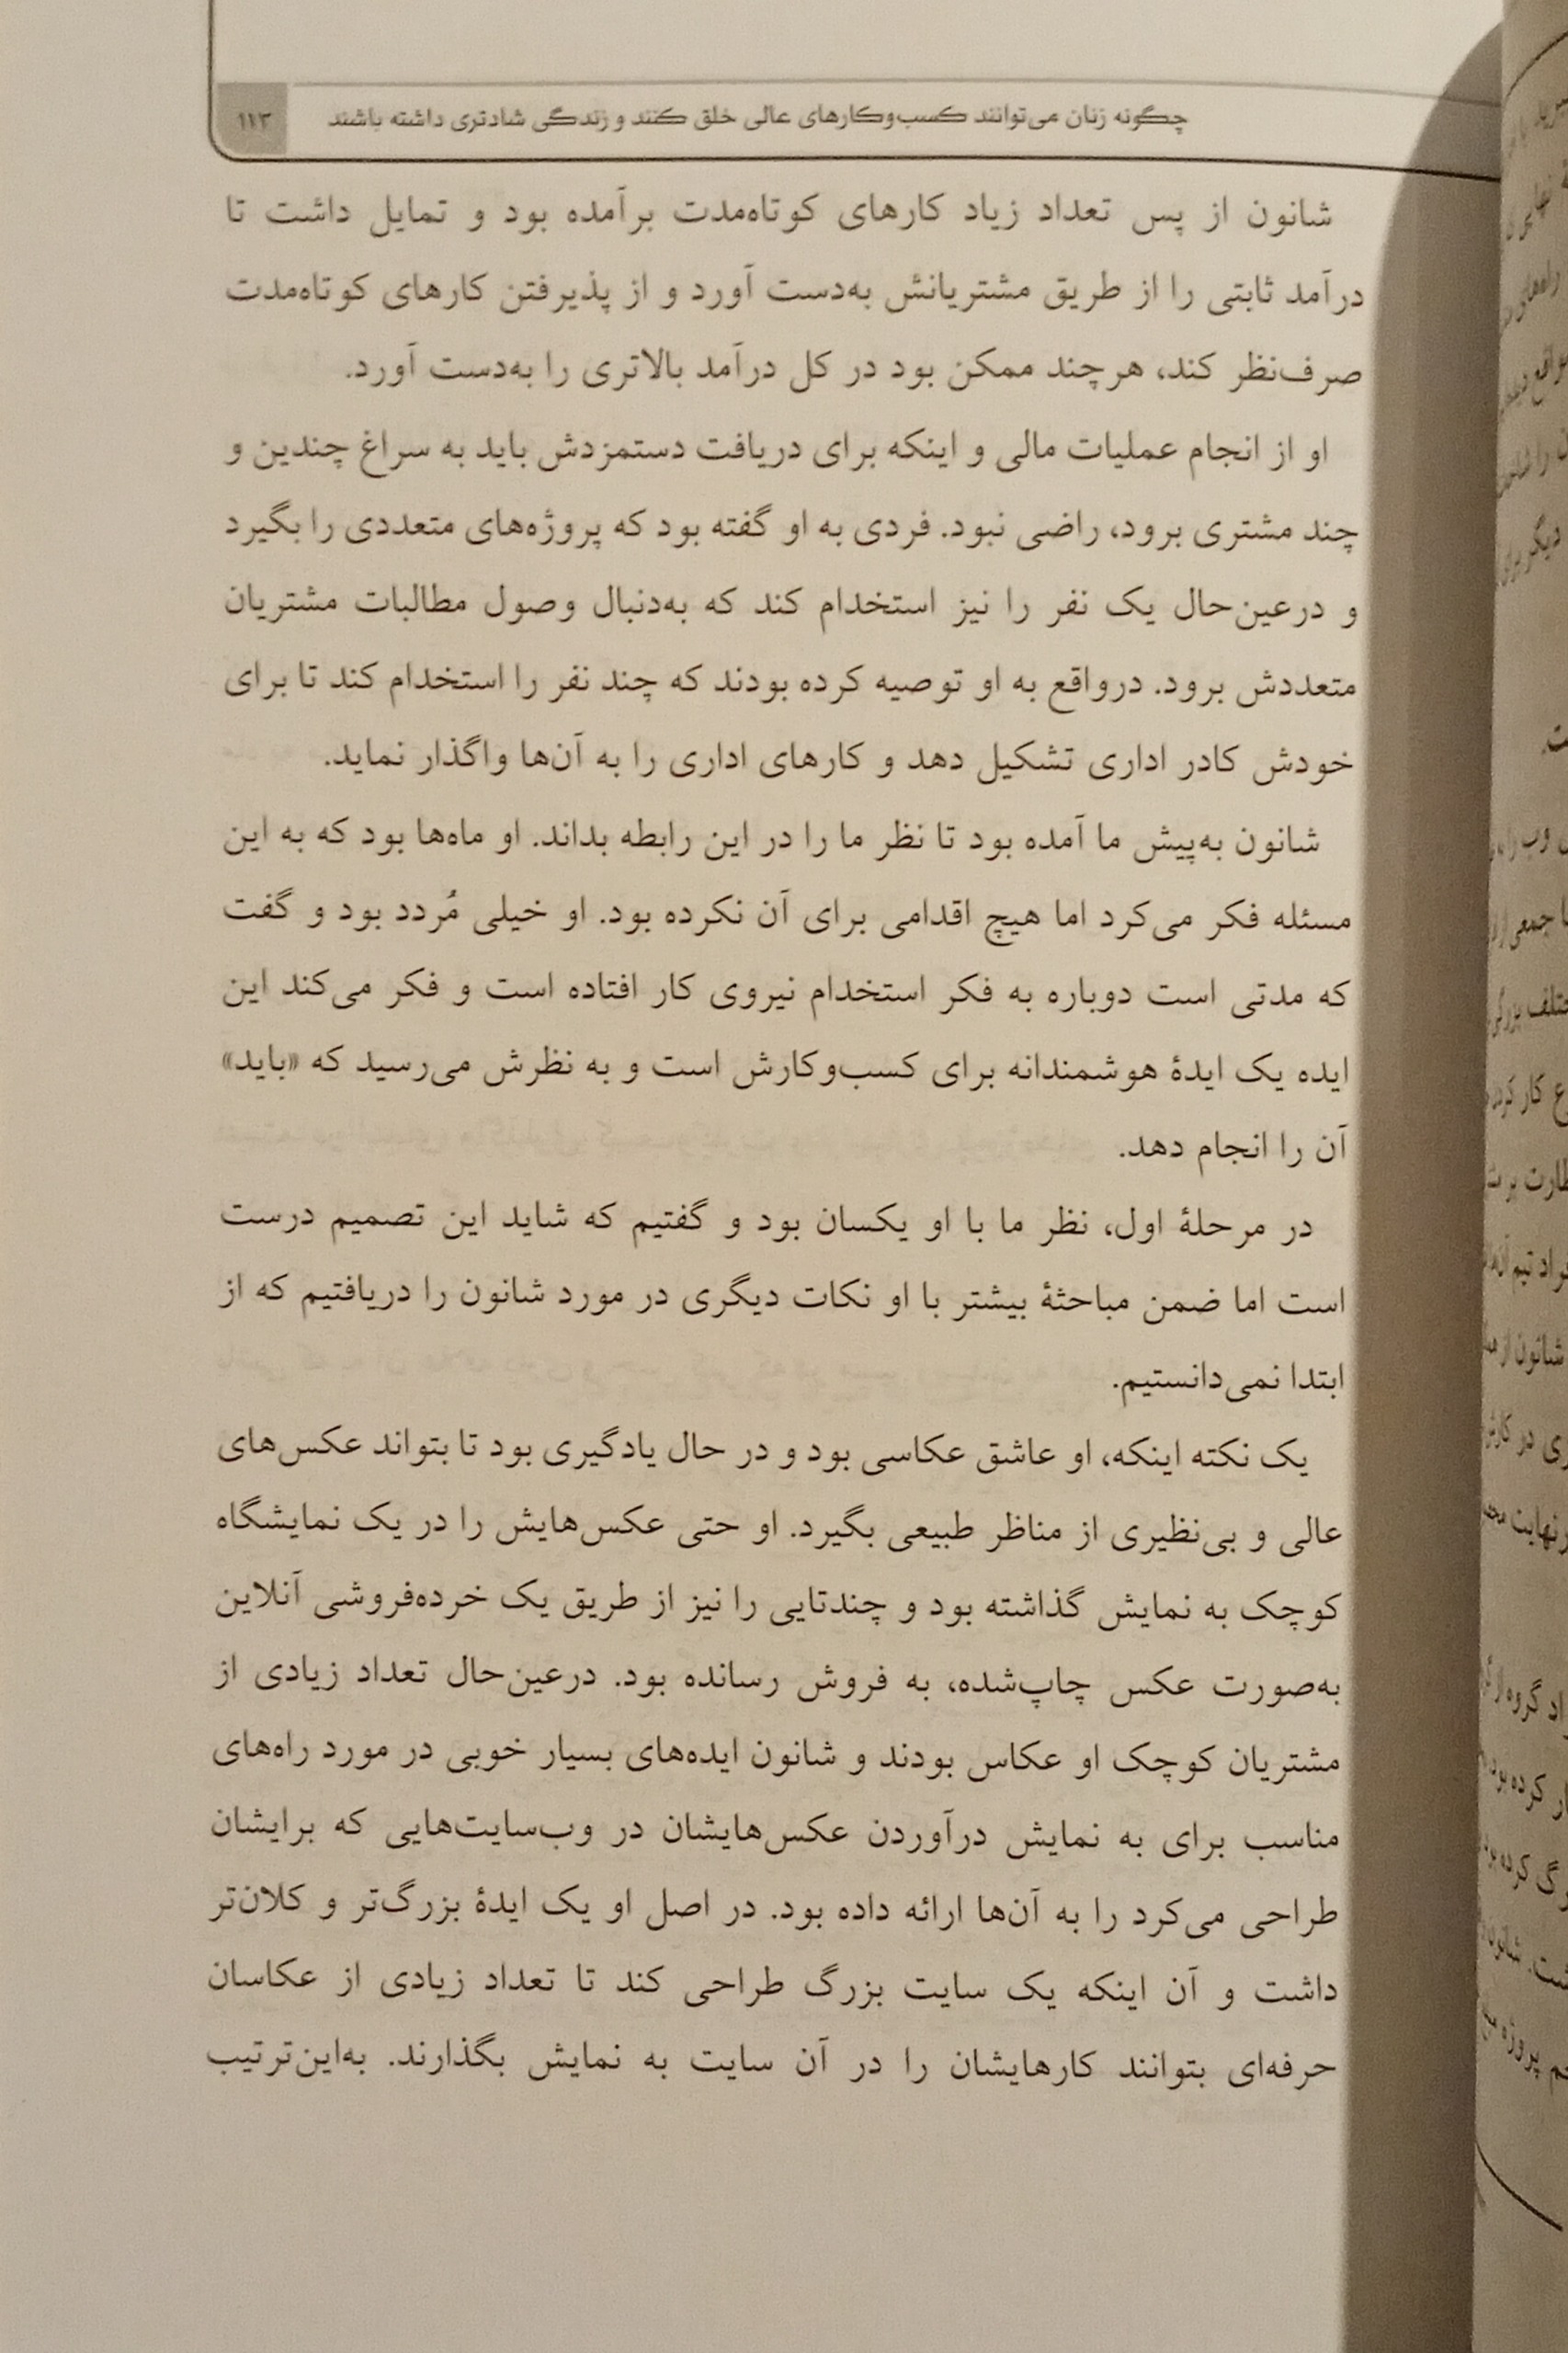 چگونه زنان می‌توانند کسب‌وکارهای عالی خلق کنند و زندگی شادتری داشته باشند ۱۱۳
شانون از پس تعداد زیاد کارهای کوتاه‌مدت برآمده بود و تمایل داشت تا
درآمد ثابتی را از طریق مشتریانش به‌دست آورد و از پذیرفتن کارهای کوتاه‌مدت
صرف‌نظر کند، هرچند ممکن بود در کل درآمد بالاتری را به‌دست آورد.
او از انجام عملیات مالی و اینکه برای دریافت دستمزدش باید به سراغ چندین و
چند مشتری برود، راضی نبود. فردی به او گفته بود که پروژه‌های متعددی را بگیرد
و درعین‌حال یک نفر را نیز استخدام کند که به‌دنبال وصول مطالبات مشتریان
متعددش برود. درواقع به او توصیه کرده بودند که چند نفر را استخدام کند تا برای
خودش کادر اداری تشکیل دهد و کارهای اداری را به آن‌ها واگذار نماید.
شانون به‌پیش ما آمده بود تا نظر ما را در این رابطه بداند. او ماه‌ها بود که به این
مسئله فکر می‌کرد اما هیچ اقدامی برای آن نکرده بود. او خیلی مُردد بود و گفت
که مدتی است دوباره به فکر استخدام نیروی کار افتاده است و فکر می‌کند این
ایده یک ایدهٔ هوشمندانه برای کسب‌وکارش است و به نظرش می‌رسید که «باید»
آن را انجام دهد.
در مرحلهٔ اول، نظر ما با او یکسان بود و گفتیم که شاید این تصمیم درست
است اما ضمن مباحثهٔ بیشتر با او نکات دیگری در مورد شانون را دریافتیم که از
ابتدا نمی‌دانستیم.
یک نکته اینکه، او عاشق عکاسی بود و در حال یادگیری بود تا بتواند عکس‌های
عالی و بی‌نظیری از مناظر طبیعی بگیرد. او حتی عکس‌هایش را در یک نمایشگاه
کوچک به نمایش گذاشته بود و چندتایی را نیز از طریق یک خرده‌فروشی آنلاین
به‌صورت عکس چاپ‌شده، به فروش رسانده بود. درعین‌حال تعداد زیادی از
مشتریان کوچک او عکاس بودند و شانون ایده‌های بسیار خوبی در مورد راه‌های
مناسب برای به نمایش درآوردن عکس‌هایشان در وب‌سایت‌هایی که برایشان
طراحی می‌کرد را به آن‌ها ارائه داده بود. در اصل او یک ایدهٔ بزرگ‌تر و کلان‌تر
داشت و آن اینکه یک سایت بزرگ طراحی کند تا تعداد زیادی از عکاسان
حرفه‌ای بتوانند کارهایشان را در آن سایت به نمایش بگذارند. به‌این‌ترتیب